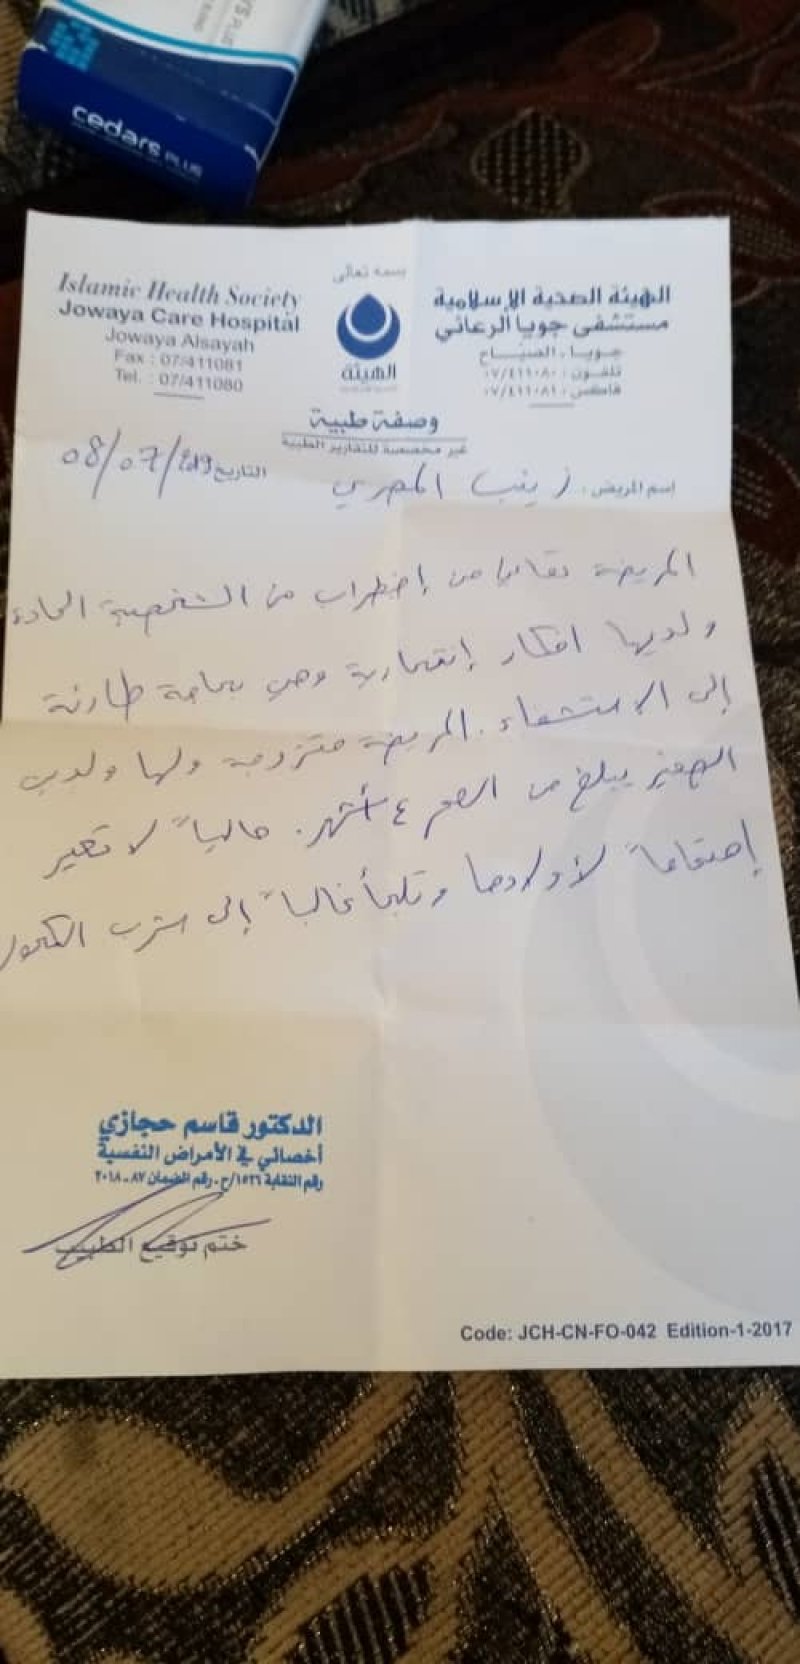 cedars PLUS
بسمه تعالى
Islamic Health Society
Jowaya Care Hospital
Jowaya Alsayah
Fax : 07/411081
Tel. : 07/411080
الهيئة
الهيئة الصحية الإسلامية
مستشفى جويا الرعائي
جويا ـ الصياح
تلفون : ٠٧/٤١١٠٨٠
فاكس : ٠٧/٤١١٠٨١
وصفة طبية
غير مخصصة للتقارير الطبية
إسم المريض : زينب المصري
التاريخ 08/07/2019
المريضة تعاني من إضطراب من الشخصية الحادة
ولديها افكار إنتحارية وهي بحاجة طارئة
إلى الاستشفاء . المريضة متزوجة ولها ولدين
الصغير يبلغ من العمر ٤ أشهر . حالياً لا تعير
إهتماماً لأولادها وتلجأ غالباً إلى شرب الكحول
الدكتور قاسم حجازي
أخصائي في الأمراض النفسية
رقم النقابة ١٥٢٦/ح ـ رقم الضمان ٨٧-٢٠١٨
ختم توقيع الطبيب
Code: JCH-CN-FO-042 Edition-1-2017